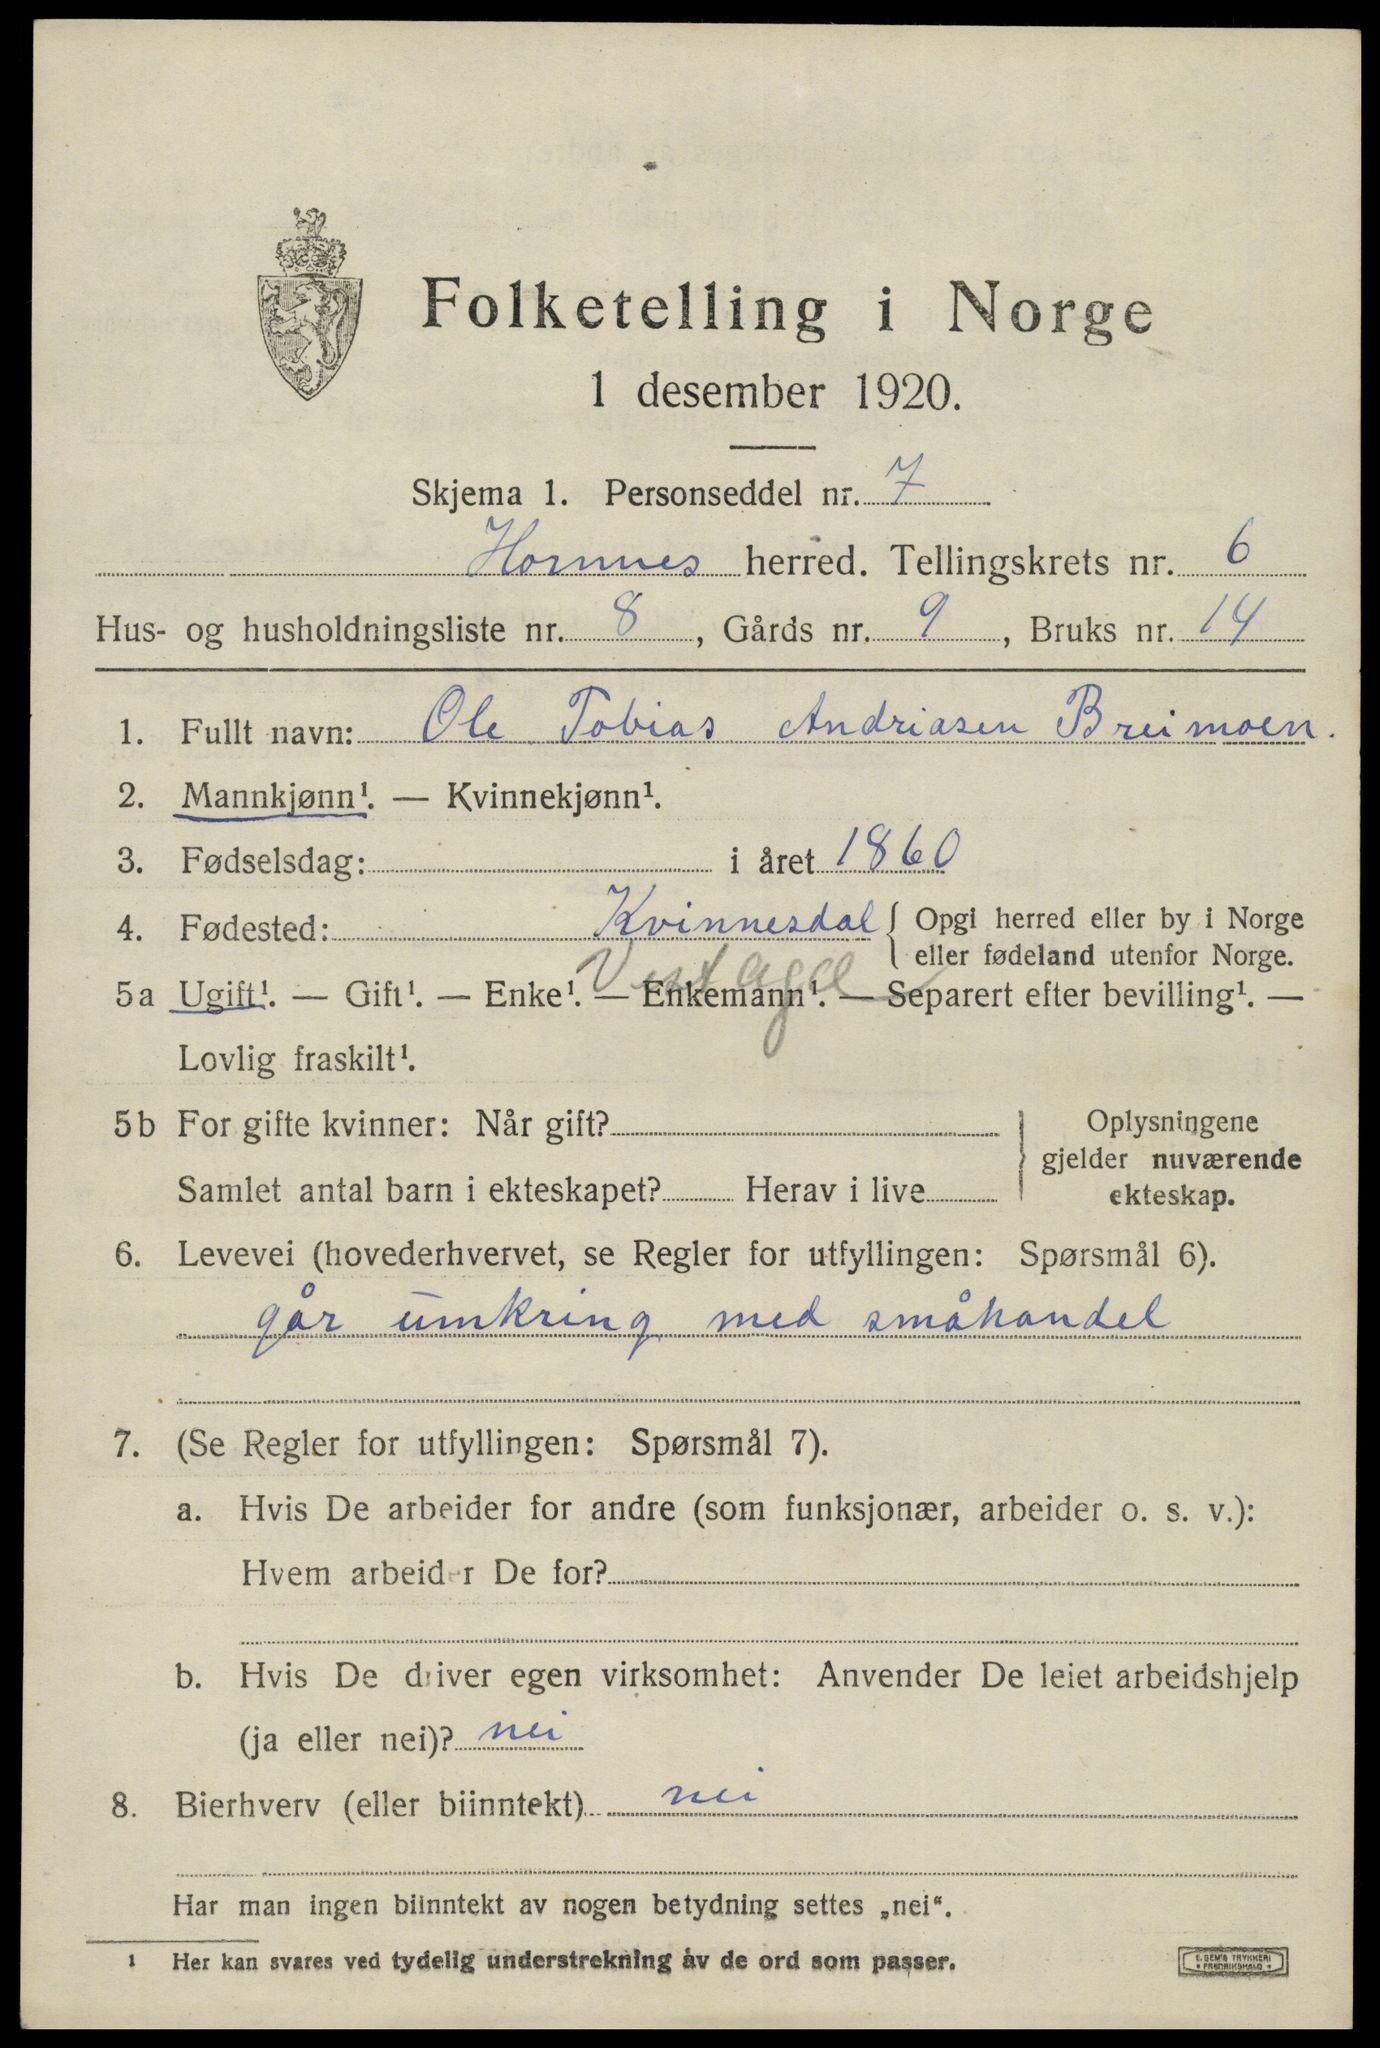 Folketelling i Norge
1 desember 1920.
Skjema 1. Personseddel nr. 7
Hornnes herred. Tellingskrets nr. 6
Hus- og husholdningsliste nr. 8, Gårds nr. 9, Bruks nr. 14
1. Fullt navn: Ole Tobias Andriasen Breimoen.
2. Mannkjønn¹. — Kvinnekjønn¹.
3. Fødselsdag: i året 1860
4. Fødested: Kvinnesdal { Opgi herred eller by i Norge
eller fødeland utenfor Norge.
Vest agd
5a Ugift¹. — Gift¹. — Enke¹. — Enkemann¹. — Separert efter bevilling¹. —
Lovlig fraskilt¹.
5b For gifte kvinner: Når gift?
Samlet antal barn i ekteskapet? Herav i live
} Oplysningene
gjelder nuværende
ekteskap.
6. Levevei (hovederhvervet, se Regler for utfyllingen: Spørsmål 6).
går umkring med småhandel
7. (Se Regler for utfyllingen: Spørsmål 7).
a. Hvis De arbeider for andre (som funksjonær, arbeider o. s. v.):
Hvem arbeider De for?
b. Hvis De driver egen virksomhet: Anvender De leiet arbeidshjelp
(ja eller nei)? nei
8. Bierhverv (eller biinntekt) nei
Har man ingen biinntekt av nogen betydning settes „nei“.
¹ Her kan svares ved tydelig understrekning av de ord som passer.
E. SEM'S TRYKKERI
• FREDRIKSHALD •